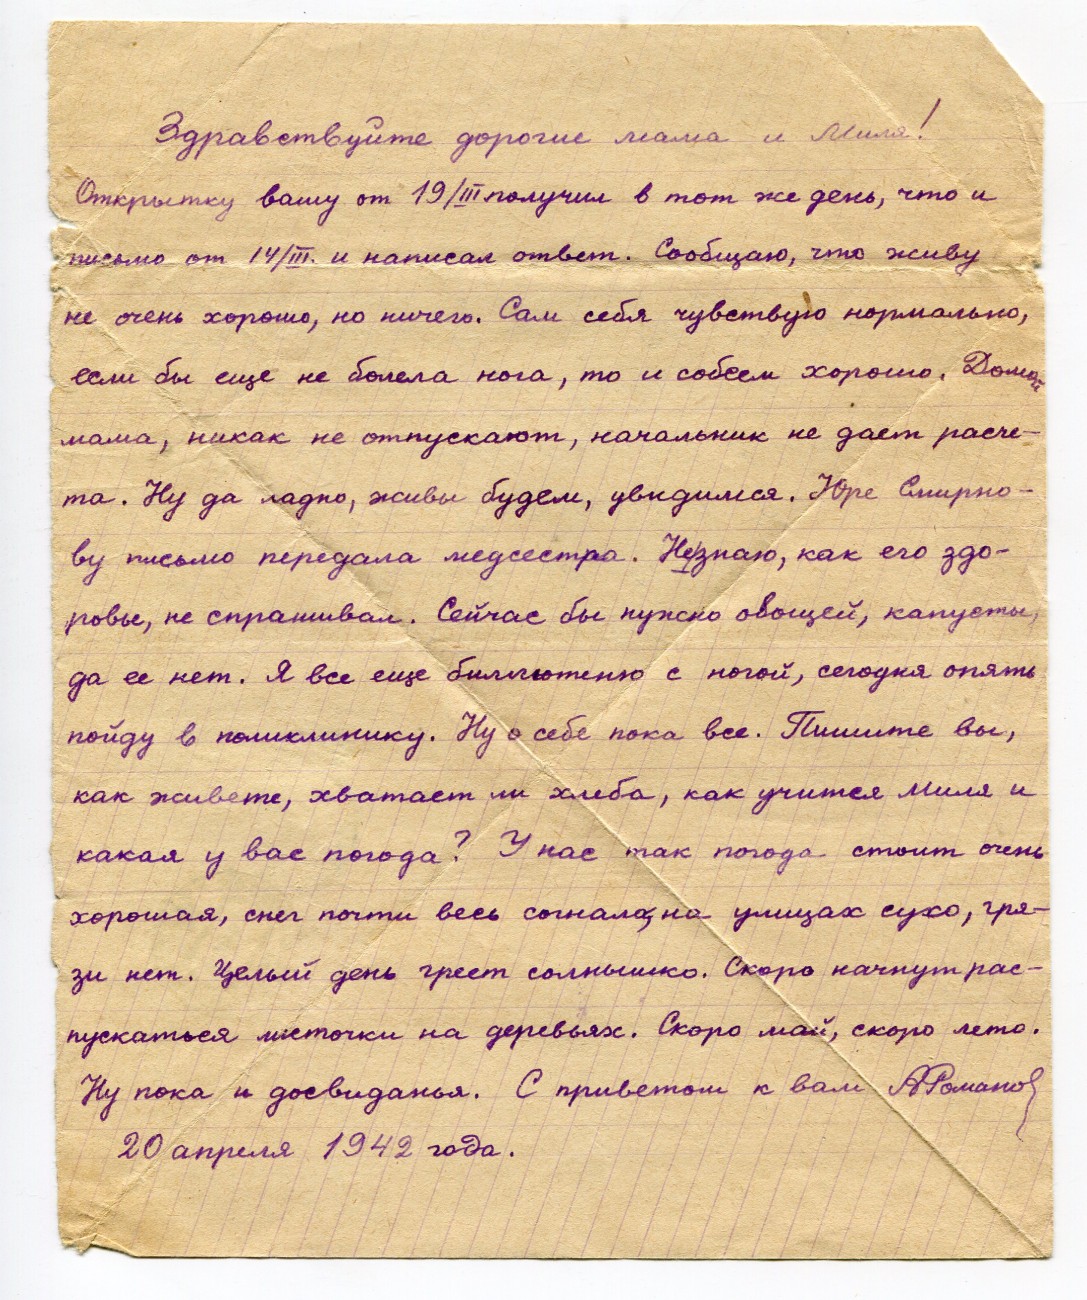 Здравствуйте дорогие мама и Миля!
Открытку вашу от 19/III получил в тот же день, что и
письмо от 14/III. и написал ответ. Сообщаю, что живу
не очень хорошо, но ничего. Сам себя чувствую нормально,
если бы еще не болела нога, то и совсем хорошо. Домой
мама, никак не отпускают, начальник не дает расче-
та. Ну да ладно, живы будем, увидимся. Юре Смирно-
ву письмо передала медсестра. Не знаю, как его здо-
ровье, не спрашивал. Сейчас бы нужно овощей, капусты,
да ее нет. Я все еще биллютеню с ногой, сегодня опять
пойду в поликлинику. Ну о себе пока все. Пишите вы,
как живете, хватает ли хлеба, как учится Миля и
какая у вас погода? У нас так погода стоит очень
хорошая, снег почти весь согнало, на улицах сухо, гря-
зи нет. Целый день греет солнышко. Скоро начнут рас-
пускаться листочки на деревьях. Скоро май, скоро лето.
Ну пока и досвиданья. С приветом к вам АРоманов
20 апреля 1942 года.